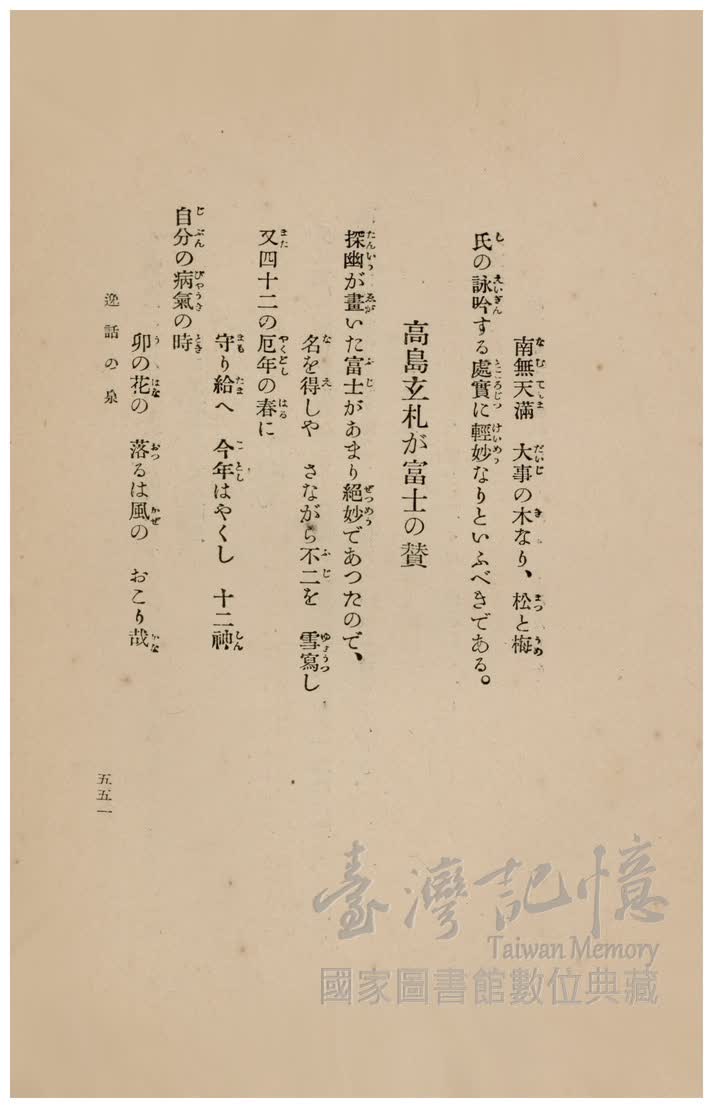 南無天滿　大事の木なり、松と梅
氏の詠吟する處實に輕妙なりといふべきである。
高島玄札が富士の賛
探幽が畫いた富士があまり絕妙であつたので、
名を得しや　さながら不二を　雪寫し
又四十二の厄年の春に
守り給へ　今年はやくし　十二神
自分の病氣の時
卯の花の　落るは風の　おこり哉
逸話の泉
五五一
臺灣記憶
Taiwan Memory
國家圖書館數位典藏